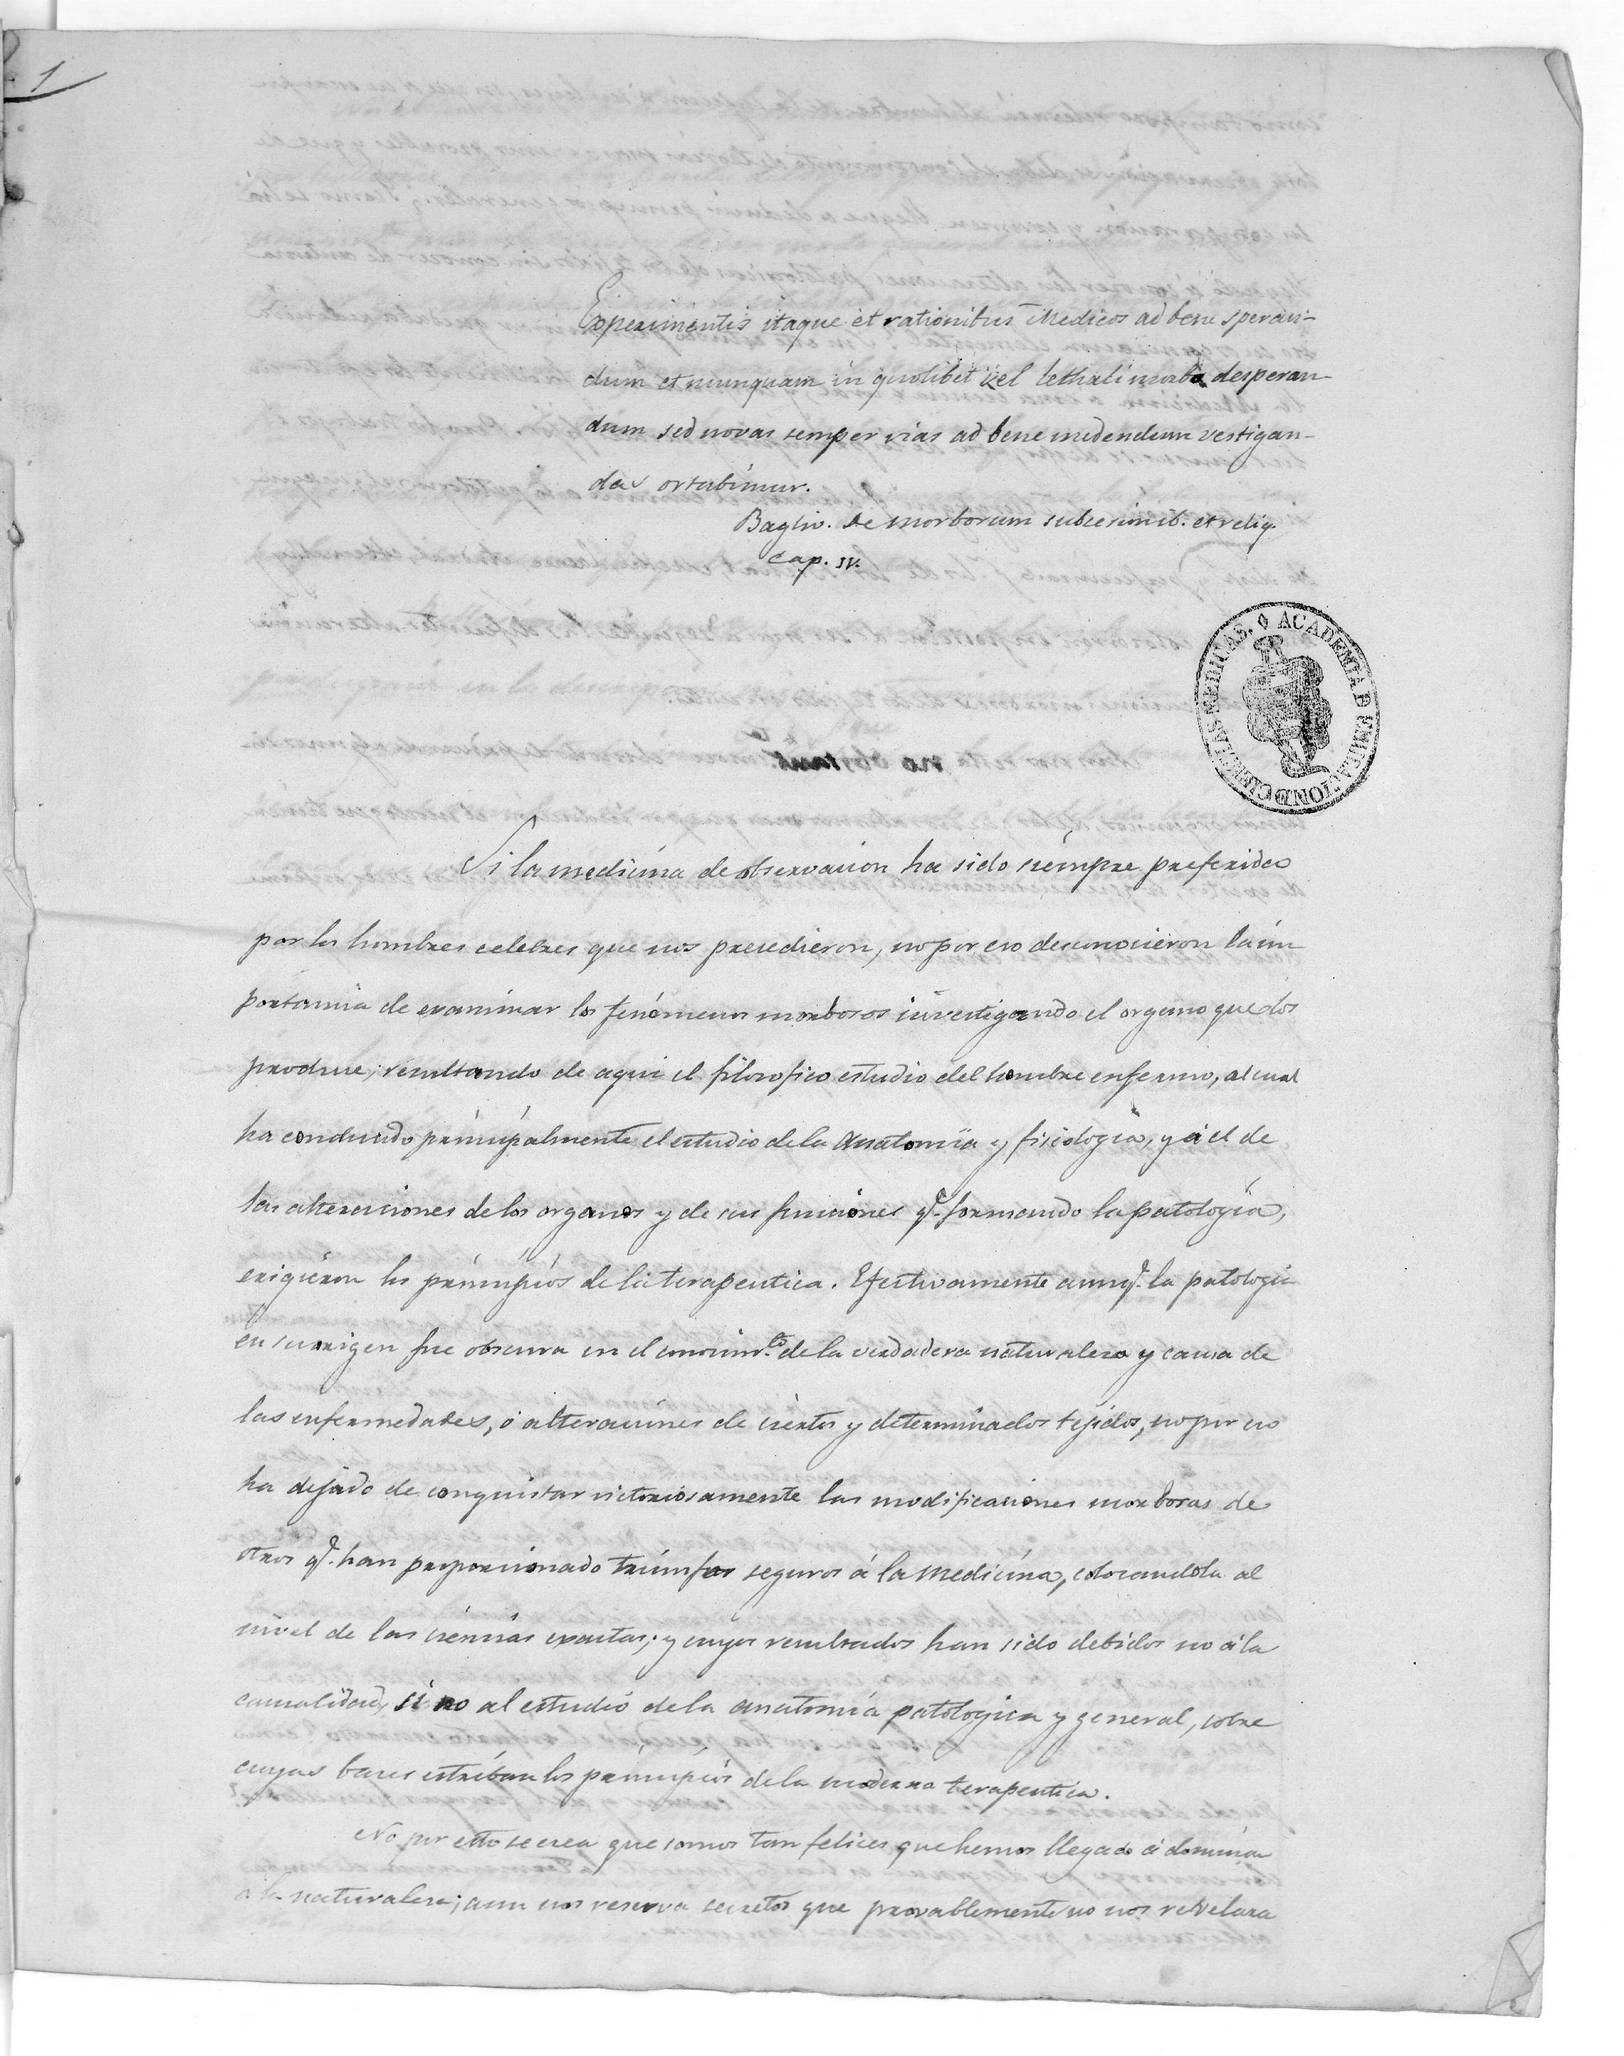 1
Experimentis itaque et rationibus Medicos ad bene speran-
dum et nunquam in quolibet vel lethali morbo desperan-
dum sed novas semper vias ad bene medendum vestigan-
das ortabimur.
Bagliv. de morborum subcesionib. et reliq.
Cap. IV.
ACADEMIA D EMULACION D CIENCIAS MEDICAS.
Si la medicina de observacion ha sido siempre preferida
por los hombres celebres que nos precedieron, no por eso desconocieron la im
portancia de examinar los fenómenos morbosos investigando el organo que los
produce; resultando de aqui el filosofico estudio del hombre enfermo, al cual
ha conducido principalmente el estudio de la Anatomia y fisiologia, y á el de
las alteraciones de los organos y de sus funciones q.e formando la patologia,
erigieron los principios de la terapeutica. Efectivamente aunq.e la patologia
en su origen fue obscura en el conocim.to de la verdadera naturaleza y causa de
las enfermedades, ó alteraciones de ciertos y determinados tejidos, no por eso
ha dejado de conquistar victoriosamente las modificaciones morbosas de
otros q.e han proporcionado triunfos seguros á la Medicina, colocandola al
nivel de las ciencias exactas; y cuyos resultados han sido debidos no á la
casualidad, si no al estudio de la anatomia patologica y general, sobre
cuyas bases estriban los principios de la moderna terapeutica.
No por esto se crea que somos tan felices que hemos llegado á dominar
á la naturaleza; aun nos reserva secretos que provablemente no nos revelara